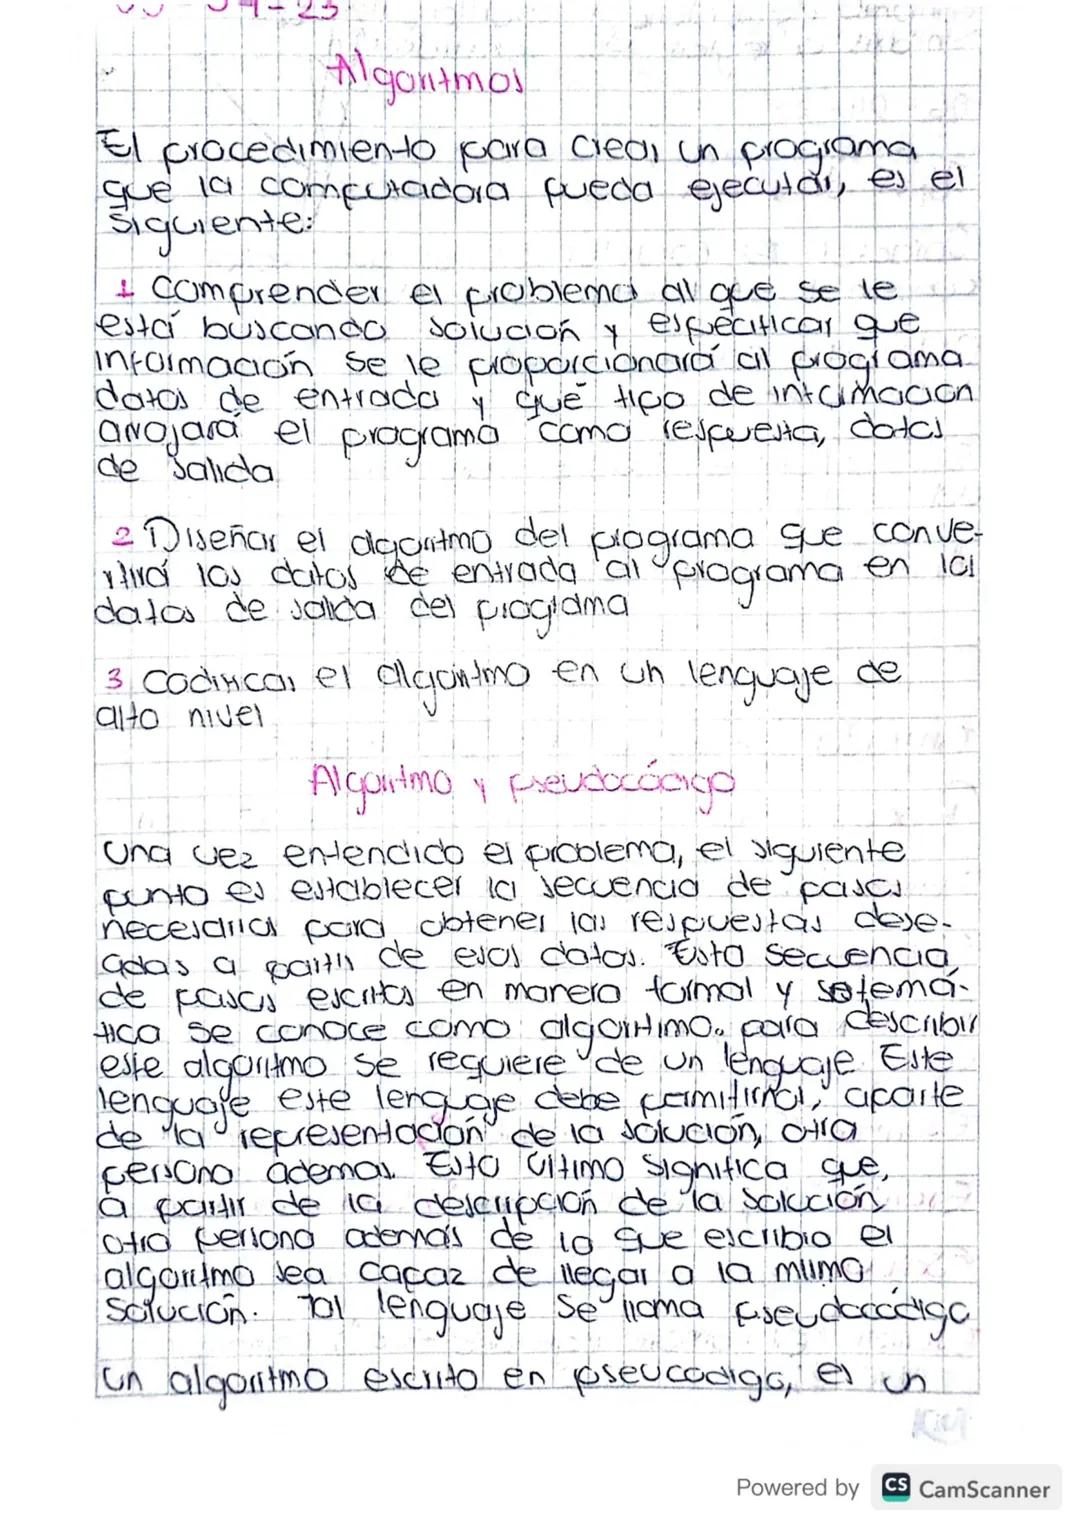 Algoritmos
El procedimiento para crear un programa
que la computadora pueda ejecutar, es el
siguiente:
1 Comprender el problema al que se le
está buscando solución y especificar que
información se le proporcionará al programa
datos de entrada y qué tipo de información
arrojará el programa como respuesta, datos
de salida
2 Diseñar el algoritmo del programa que conve-
rtirá los datos de entrada al programa en los
datos de salida del programa
3 Codificar el algoritmo en un lenguaje de
alto nivel
Algoritmo y pseudocódigo
Una vez entendido el problema, el siguiente
punto es establecer la secuencia de pasos
necesarios para obtener las respuestas dese-
adas a partir de esos datos. Esta secuencia
de pasos escritos en manera formal y sistemá-
tica se conoce como algoritmo. para describir
este algoritmo se requiere de un lenguaje Este
lenguaje este lenguaje debe permitirnos, aparte
de la representación de la solución, otra
persona ademas. Esto último significa que,
a partir de la descripción de la solución
otra persona además de la que escribio el
algoritmo sea capaz de llegar a la misma
solución. Tal lenguaje se llama pseudocódigo
un algoritmo escrito en pseucodigo, es un
Powered by CS CamScanner